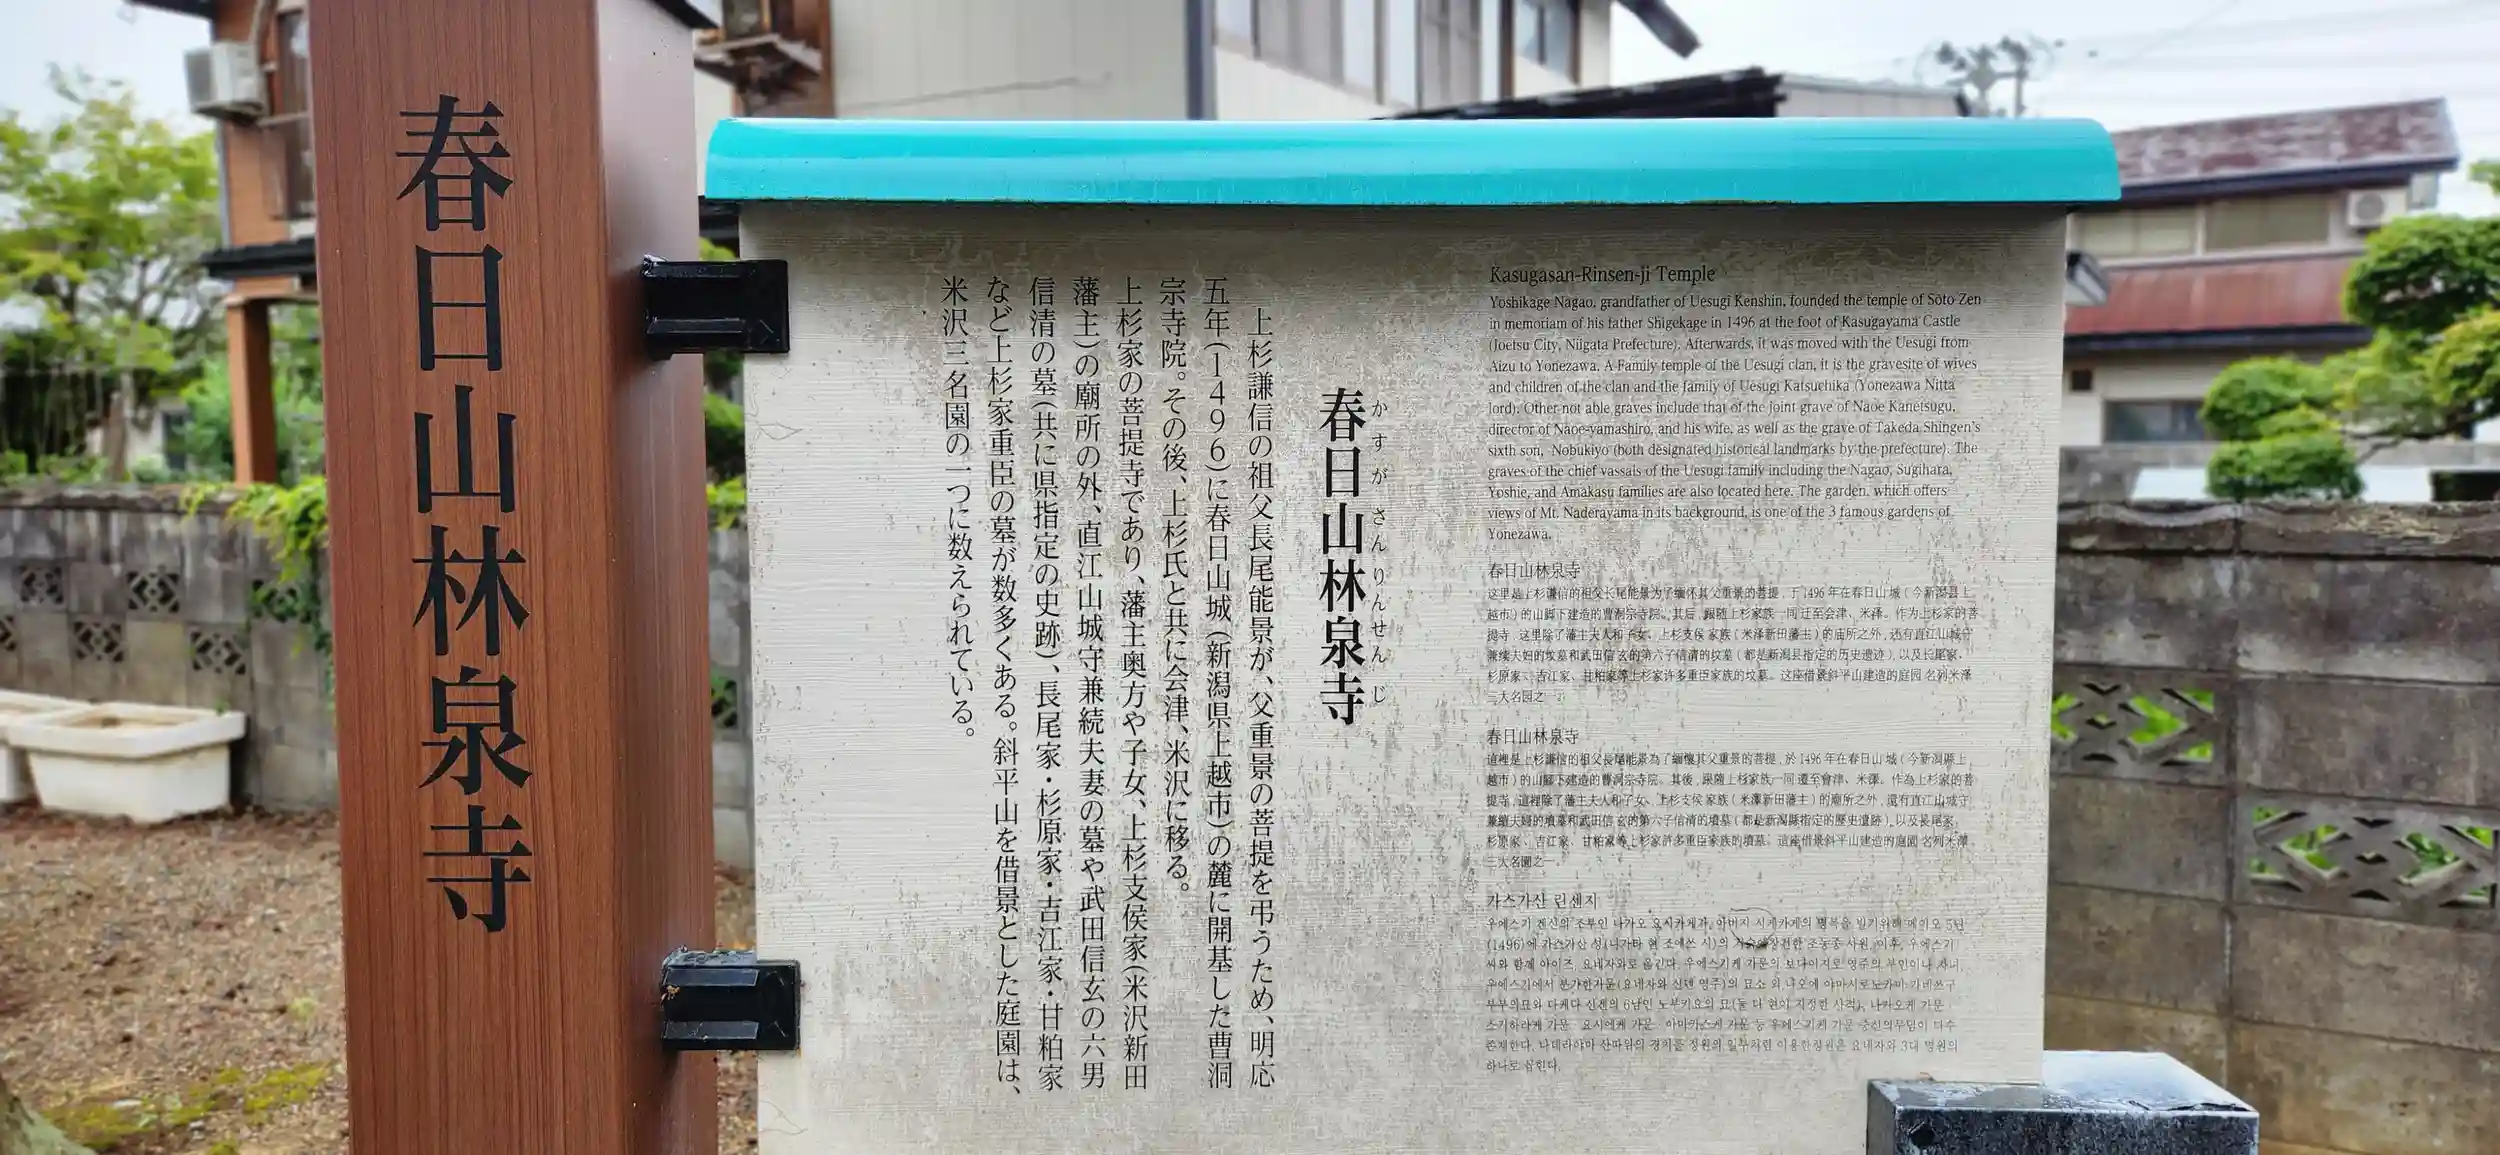 春日山林泉寺
春日山林泉寺
かすがさんりんせんじ
上杉謙信の祖父長尾能景が、父重景の菩提を弔うため、明応
五年(1496)に春日山城(新潟県上越市)の麓に開基した曹洞
宗寺院。その後、上杉氏と共に会津、米沢に移る。
上杉家の菩提寺であり、藩主奥方や子女、上杉支侯家(米沢新田
藩主)の廟所の外、直江山城守兼続夫妻の墓や武田信玄の六男
信清の墓(共に県指定の史跡)、長尾家・杉原家・吉江家・甘粕家
など上杉家重臣の墓が数多くある。斜平山を借景とした庭園は、
米沢三名園の一つに数えられている。
Kasugasan-Rinsen-ji Temple
Yoshikage Nagao, grandfather of Uesugi Kenshin, founded the temple of Soto Zen
in memoriam of his father Shigekage in 1496 at the foot of Kasugayama Castle
(Joetsu City, Niigata Prefecture). Afterwards, it was moved with the Uesugi from
Aizu to Yonezawa. A Family temple of the Uesugi clan, it is the gravesite of wives
and children of the clan and the family of Uesugi Katsuchika (Yonezawa Nitta
lord). Other not able graves include that of the joint grave of Naoe Kanetsugu,
director of Naoe-yamashiro, and his wife, as well as the grave of Takeda Shingen's
sixth son, Nobukiyo (both designated historical landmarks by the prefecture). The
graves of the chief vassals of the Uesugi family including the Nagao, Sugihara,
Yoshie, and Amakasu families are also located here. The garden, which offers
views of Mt. Naderayama in its background, is one of the 3 famous gardens of
Yonezawa.
春日山林泉寺
这里是上杉谦信的祖父长尾能景为了缅怀其父重景的菩提，于1496年在春日山城（今新潟县上
越市）的山脚下建造的曹洞宗寺院。其后，跟随上杉家族一同迁至会津、米泽。作为上杉家的菩
提寺，这里除了藩主夫人和子女、上杉支侯家族（米泽新田藩主）的庙所之外，还有直江山城守
兼续夫妇的坟墓和武田信玄的第六子信清的坟墓（都是新潟县指定的历史遗迹），以及长尾家、
杉原家、吉江家、甘粕家等上杉家许多重臣家族的坟墓。这座借景斜平山建造的庭园名列米泽
三大名园之一。
春日山林泉寺
這裡是上杉謙信的祖父長尾能景為了緬懷其父重景的菩提，於1496年在春日山城（今新潟縣上
越市）的山腳下建造的曹洞宗寺院。其後，跟隨上杉家族一同遷至會津、米澤。作為上杉家的菩
提寺，這裡除了藩主夫人和子女、上杉支侯家族（米澤新田藩主）的廟所之外，還有直江山城守
兼續夫婦的墳墓和武田信玄的第六子信清的墳墓（都是新潟縣指定的歷史遺跡），以及長尾家、
杉原家、吉江家、甘粕家等上杉家許多重臣家族的墳墓。這座借景斜平山建造的庭園名列米澤
三大名園之一。
가스가산 린센지
우에스기 겐신의 조부인 나가오 요시카게가, 아버지 시게카게의 명복을 빌기위해 메이오 5년
(1496)에 가스가산 성(니가타 현 조에쓰 시)의 기슭에 창건한 조동종 사원. 이후, 우에스기
씨와 함께 아이즈, 요네자와로 옮긴다. 우에스기케 가문의 보다이지로 영주의 부인이나 자녀,
우에스기에서 분가한가문(요네자와 신덴 영주)의 묘소 외 나오에 야마시로노카미 가네쓰구
부부의묘와 다케다 신겐의 6남인 노부키요의 묘(둘 다 현이 지정한 사적), 나가오케 가문
스기하라케 가문 요시에케 가문 아마카스케 가문 등 우에스기케 가문 중신의무덤이 다수
존재한다. 나데라야마 산따위의 경치를 정원의 일부처럼 이용한정원은 요네자와 3대 명원의
하나로 꼽힌다.